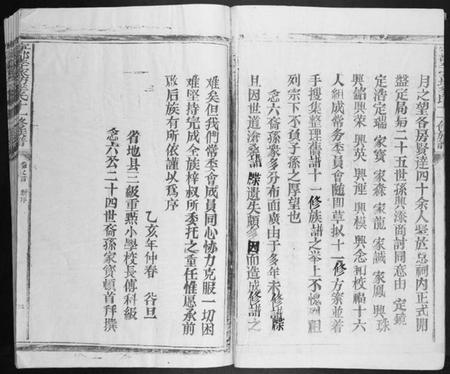 月之望各房賢達四十余人聚於總祠內正式開
盤定局由二十五世孫興漆商討同意由 定鏡
定浩 定瑞 家寶 家森 家龍 家誠 家鳳 興珠
興韶 興榮 興英 興運 興模 興念 初校 楊十六
人組成常務委員會隨即草拟十一修方案並着
手搜集整理舊譜十一修族譜之举上不愧烈祖
列宗下不負子孫之厚望也
念六裔孫眾多分布面廣由于多年未修譜牒
且因世道滄桑譜牒遺失頗多因而造成修譜之
難矣但我們常委會成員同心協力克服一切困
難堅持完成全族梓叔所委托之重任惟愿承前
啟后族有所依謹以為序
乙亥年仲春 谷旦
省地县三級重點小學校長傳科級
念六公二十四世裔孫家寶頓首拜撰